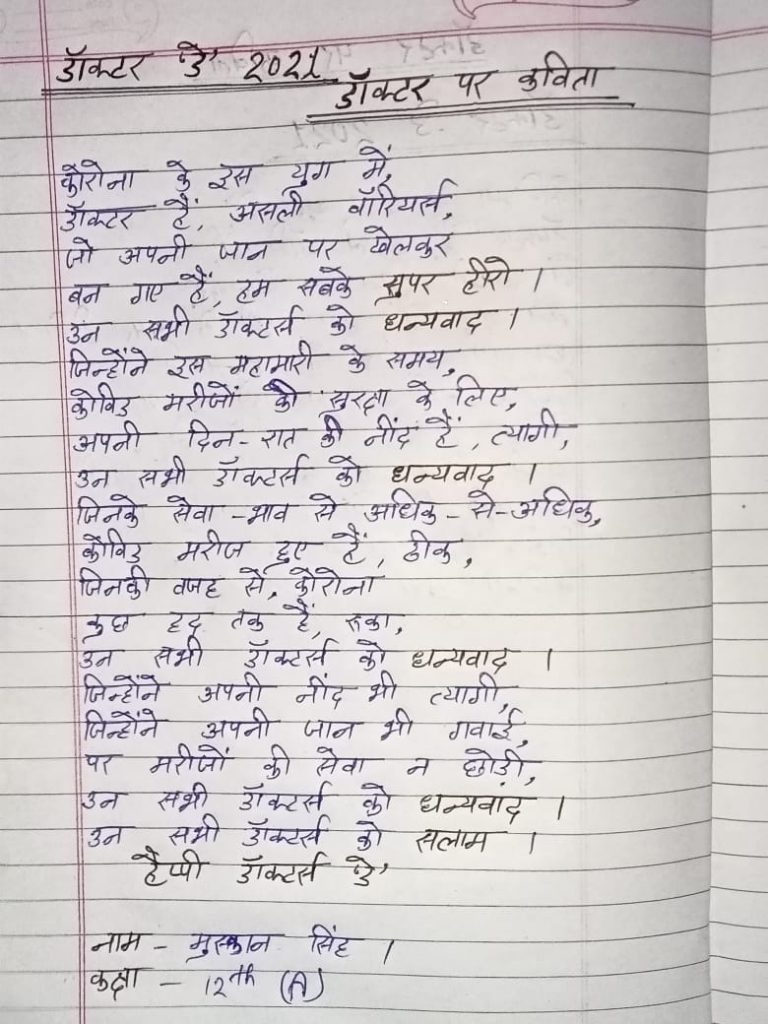 डॉक्टर 'डे' 2021
डॉक्टर पर कविता
कोरोना के इस युग में,
डॉक्टर हैं, असली वॉरियर्स,
जो अपनी जान पर खेलकर
बन गए हैं, हम सबके सुपर हीरो ।
उन सभी डॉक्टर्स को धन्यवाद ।
जिन्होंने इस महामारी के समय,
कोविड मरीजों की सुरक्षा के लिए,
अपनी दिन-रात की नींद हैं, त्यागी,
उन सभी डॉक्टर्स को धन्यवाद ।
जिनके सेवा-भाव से अधिक-से-अधिक,
कोविड मरीज हुए हैं, ठीक,
जिनकी वजह से, कोरोना
कुछ हद तक हैं, रूका,
उन सभी डॉक्टर्स को धन्यवाद ।
जिन्होंने अपनी नींद भी त्यागी,
जिन्होंने अपनी जान भी गवाई,
पर मरीजों की सेवा न छोडी,
उन सभी डॉक्टर्स को धन्यवाद ।
उन सभी डॉक्टर्स को सलाम ।
हैप्पी डॉक्टर्स 'डे'
नाम - मुस्कान सिंह ।
कक्षा - 12th (A)